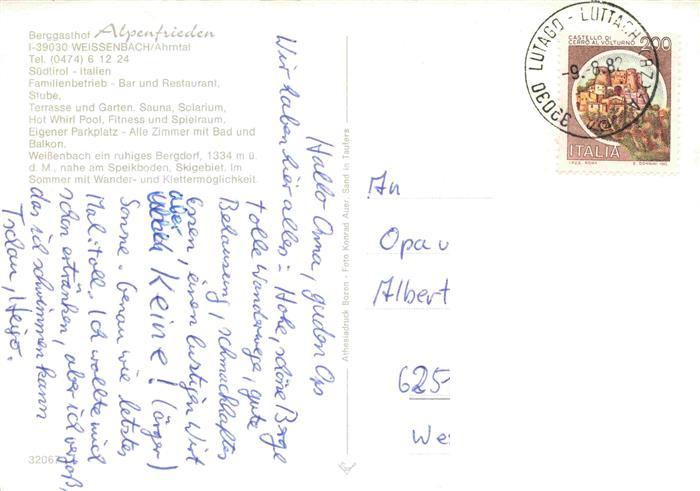 Berggasthof Alpenfrieden
I-39030 WEISSENBACH/Ahrntal
Tel. (0474) 6 12 24
Südtirol - Italien
Familienbetrieb - Bar und Restaurant,
Stube,
Terrasse und Garten. Sauna, Solarium,
Hot Whirl Pool, Fitness und Spielraum.
Eigener Parkplatz - Alle Zimmer mit Bad und
Balkon.
Weißenbach ein ruhiges Bergdorf, 1334 m ü.
d. M., nahe am Speikboden, Skigebiet. Im
Sommer mit Wander- und Klettermöglichkeit.
Hallo Oma, guden Opa
Wir haben hier alles: Hohe, schöne Berge
tolle Wanderwege, gute
Behausung, schmackhaftes
Essen, einen lustigen Wirt
aber Keine! (ärger)
Sonne. Genau wie letztes
Mal: toll. Ich wollte mich
schon ertränken, aber ich vergaß,
das ich schwimmen kann
Tschau, Heyo.
32067
Athesiadruck Bozen - Foto Konrad Auer, Sand in Taufers
39030 LUTAGO - LUTTACH (BZ)
-9.-8.82
CASTELLO DI
CERRO AL VOLTURNO
200
ITALIA
I.P.Z.S. ROMA
E. DONNINI
An
Opa u
Albert
625
We